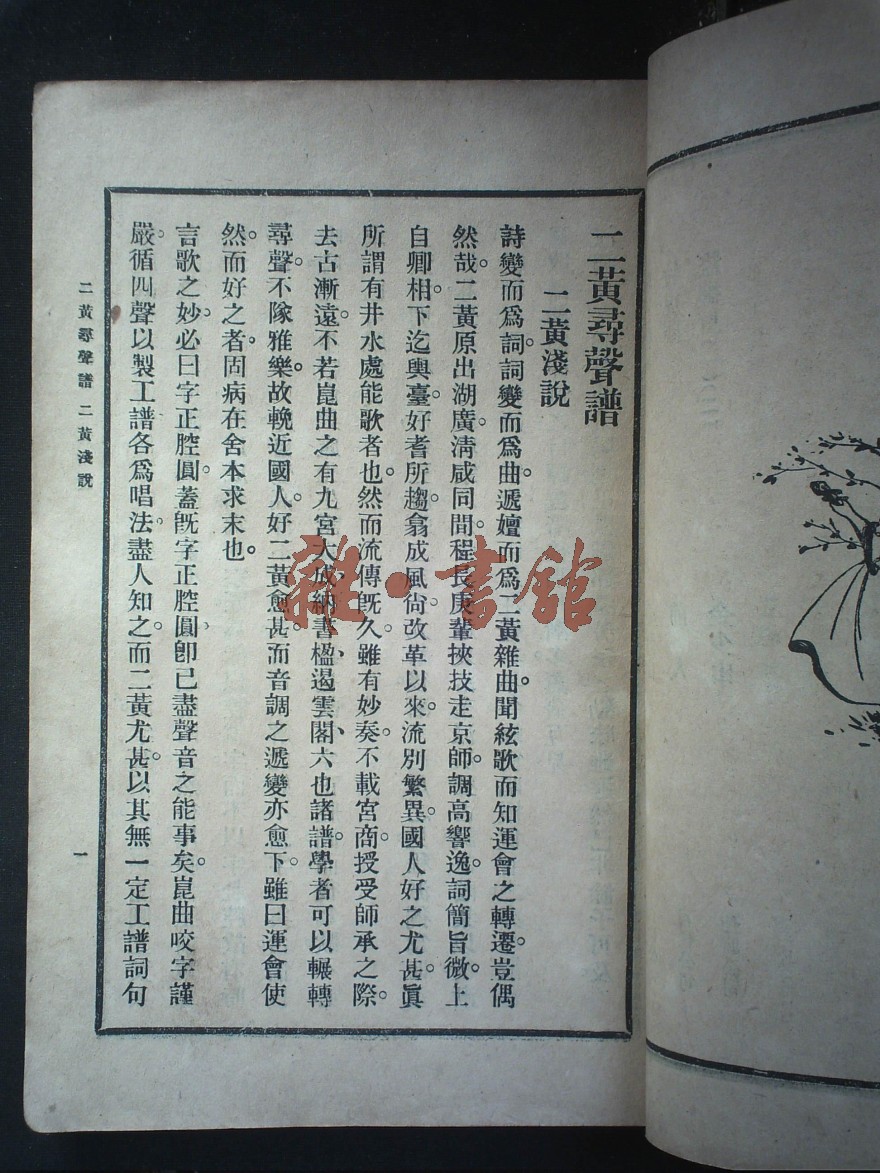 二黃尋聲譜
二黃淺說
詩變而爲詞詞變而爲曲。遞嬗而爲二黃雜曲。聞絃歌而知運會之轉遷。豈偶
然哉。二黃原出湖廣。淸咸同間。程長庚輩挾技走京師。調高響逸。詞簡旨微。上
自卿相。下迄輿臺。好耆所趨。翕成風尙。改革以來。流別繁異。國人好之尤甚。眞
所謂有井水處能歌者也。然而流傳旣久。雖有妙奏。不載宮商。授受師承之際。
去古漸遠。不若崑曲之有九宮大成、納書楹、遏雲閣、六也諸譜。學者可以輾轉
尋聲。不隊雅樂。故輓近國人。好二黃愈甚。而音調之遞變亦愈下。雖曰運會使
然。而好之者。固病在舍本求末也。
言歌之妙。必曰字正腔圓。蓋旣字正腔圓。卽已盡聲音之能事矣。崑曲咬字謹
嚴。循四聲以製工譜。各爲唱法。盡人知之。而二黃尤甚。以其無一定工譜詞句
二黃尋聲譜 二黃淺說
一
雜·書館